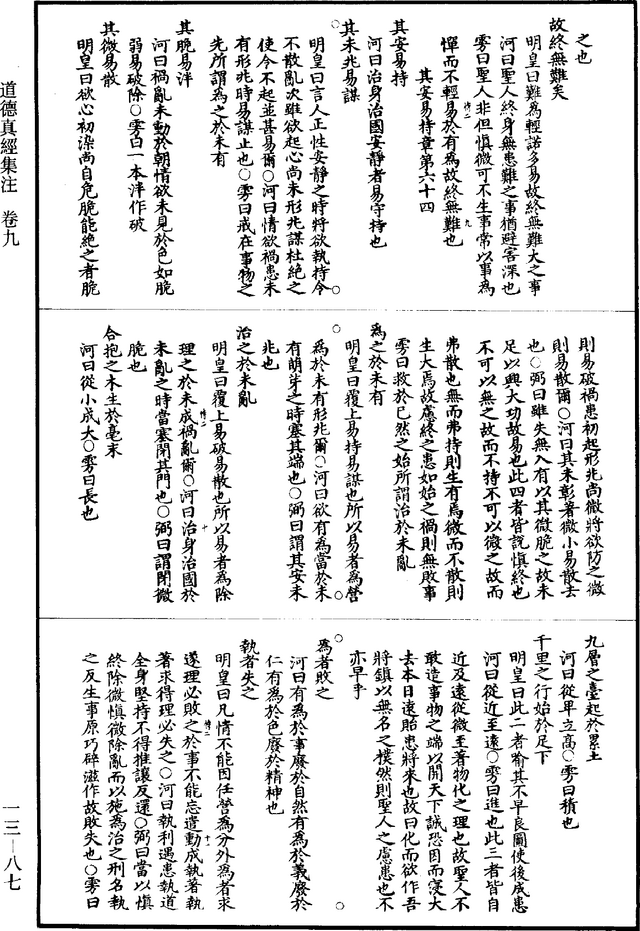 道德真經集注　卷九
一三—八七
之也
故終無難矣
明皇曰難為輕諾多易故終無難大之事
河曰聖人終身無患難之事猶避害深也
雱曰聖人非但慎微可不生事常以事為
憚而不輕易於有為故終無難也
其安易持章第六十四
其安易持
河曰治身治國安靜者易守持也
其未兆易謀
明皇曰言人正性安靜之時將欲執持令
不散亂次雖欲起心尚未形兆謀杜絕之
使令不起並甚易爾○河曰情欲禍患未
有形兆時易謀止也○雱曰戒在事物之
先所謂為之於未有
其脆易泮
河曰禍亂未動於朝情欲未見於色如脆
弱易破除○雱曰一本泮作破
其微易散
明皇曰欲心初染尚自危脆能絕之者脆
則易破禍患初起形兆尚微將欲防之微
則易散爾○河曰其未彰著微小易散去
也○弼曰雖失無入有以其微脆之故未
足以興大功故易也此四者皆說慎終也
不可以無之故而不持不可以微之故而
弗散也無而弗持則生有焉微而不散則
生大焉故慮終之患如始之禍則無敗事
雱曰救於已然之始所謂治於未亂
為之於未有
明皇曰覆上易持易謀也所以易者為營
為於未有形兆爾○河曰欲有為當於未
有萌芽之時塞其端也○弼曰謂其安未
兆也
治之於未亂
明皇曰覆上易破易散也所以易者為除
理之於未成禍亂爾○河曰治身治國於
未亂之時當塞閉其門也○弼曰謂閉微
脆也
合抱之木生於毫末
河曰從小成大○雱曰長也
九層之臺起於累土
河曰從卑立高○雱曰積也
千里之行始於足下
明皇曰此二者喻其不早良圖使後成患
河曰從近至遠○雱曰進也此三者皆自
近及遠從微至著物化之理也故聖人不
敢造事物之端以開天下誠恐因而寖大
去本日遠貽患將來也故曰化而欲作吾
將鎮以無名之樸然則聖人之慮患也不
亦早乎
為者敗之
河曰有為於事廢於自然有為於義廢於
仁有為於色廢於精神也
執者失之
明皇曰凡情不能因任營為分外為者求
遂理必敗之於事不能忘遣動成執著執
著求得理必失之○河曰執利遇患執道
全身堅持不得推讓反還○弼曰當以慎
終除微慎微除亂而以施為治之刑名執
之反生事原巧碎滋作故敗失也○雱曰